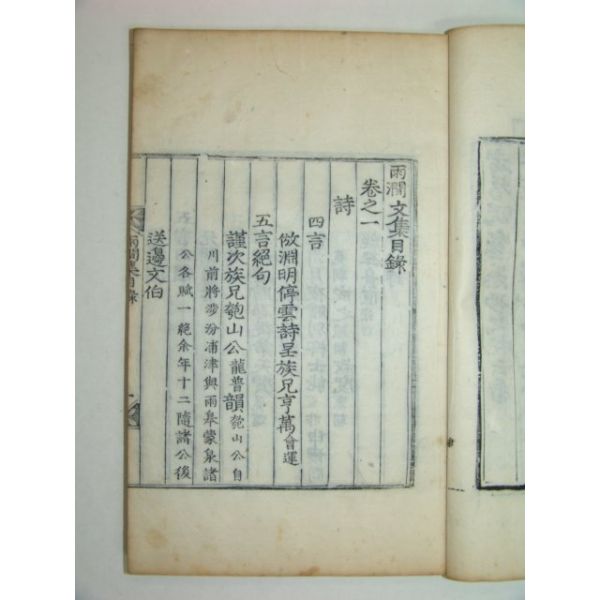 雨澗文集目錄
卷之一
詩
四言
倣淵明停雲詩呈族兄亨萬會運
五言絕句
謹次族兄匏山公龍普韻匏山公自
川前將涉汾浦津與雨皋蒙泉諸
公各賦一絕余年十二隨諸公後
送邊文伯
雨澗集目錄